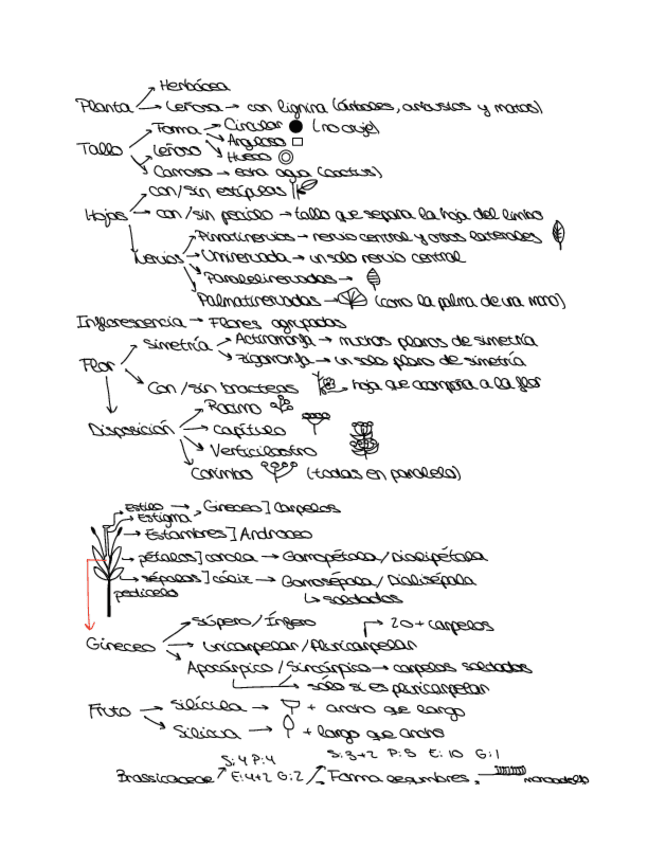 Herbácea
Planta → Leñosa → con lignina (árboles, arbustos y matas)
Forma → Circular (no auje)
Anguloso
Tallo Leñoso Hueco
Carnoso → extra agua (cactus)
con/sin estípulas
Hojas → con/sin peciolo → tallo que separa la hoja del limbo
Pinnatinervias → nervio central y otros laterales
Nervios → Uninervada → un solo nervio central
Paralelinervadas →
Palmatinervadas → (como la palma de una mano)
Inflorescencia → Flores agrupadas
Simetría → Actinomorfa → muchos planos de simetría
zigomorfa → un solo plano de simetría
Flor
Con/sin bracteas hoja que acompaña a la flor
Racimo
Disposición → capítulo
Verticilastro
Corimbo (todas en paralelo)
Estilo → Gineceo ] Carpelos
Estigma
→ Estambres ] Androceo
→ pétalos ] corola → Gamopétala / Dialipétala
→ sépalos ] cáliz → Gamosépala / Dialisépala
pedicelo ↳ soldados
Súpero / Ínfero 2 o + carpelos
Gineceo → unicarpelar / Pluricarpelar
Apocárpico / Sincárpico → carpelos soldados
→ sólo si es pluricarpelar
Fruto → Silícula → + ancho que largo
Silicua → + largo que ancho
S: 4 P: 4 S: 3+2 P: 5 E: 10 G: 1
Brassicaceae E: 4+2 G: 2 / Forma legumbres.